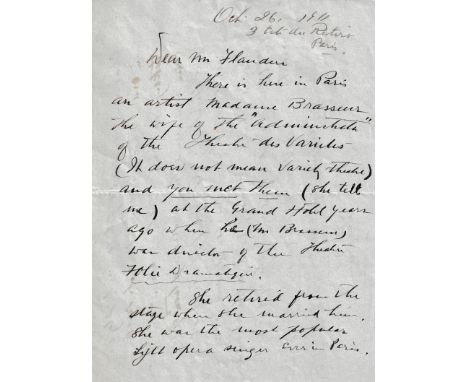 Oct. 26. 1911
Paris.
Dear Mr Flanders
There is here in Paris
an artist Madame Brasseur
the wife of the "adminstrata"
of the Theatre des Varieties
(It does not mean Variety theatre)
and you met them (she tells
me) at the Grand Hotel years
ago when he (Mr Brasseur)
was director of the Theatre
Folie Dramatique.
She retired from the
stage when she married him.
She was the most popular
light opera singer ever in Paris.